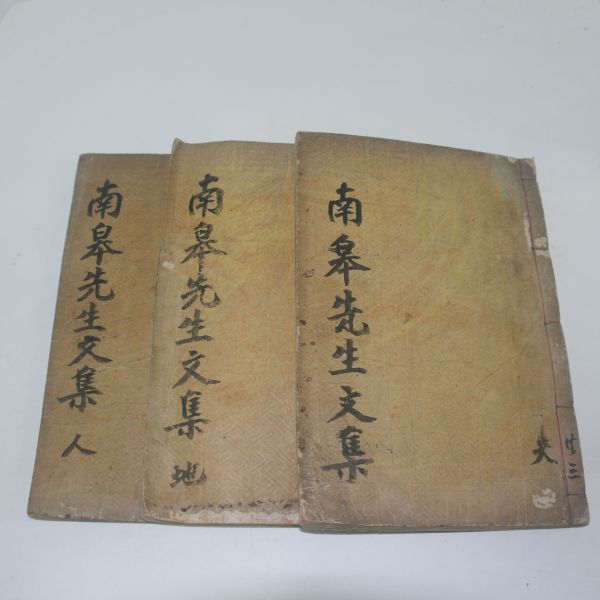 南皐先生文集
共三
天
南皐先生文集
地
南皐先生文集
人